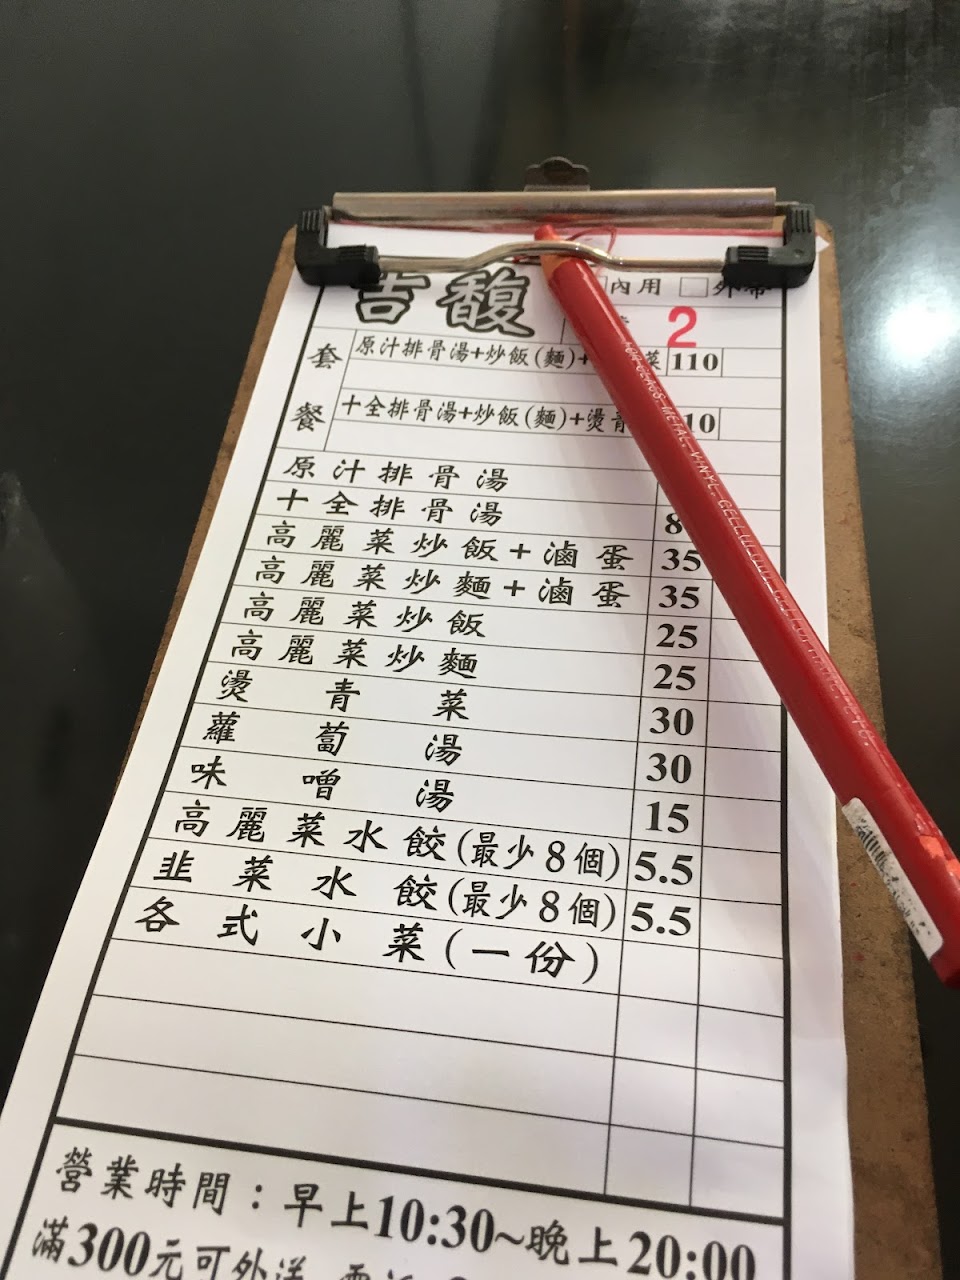 吉馥 內用 外帶
2
套餐
原汁排骨湯+炒飯(麵)+ 菜 110
十全排骨湯+炒飯(麵)+燙青 10
原汁排骨湯
十全排骨湯 8
高麗菜炒飯+滷蛋 35
高麗菜炒麵+滷蛋 35
高麗菜炒飯 25
高麗菜炒麵 25
燙青菜 30
蘿蔔湯 30
味噌湯 15
高麗菜水餃(最少8個) 5.5
韭菜水餃(最少8個) 5.5
各式小菜(一份)
營業時間：早上10:30~晚上20:00
滿300元可外送